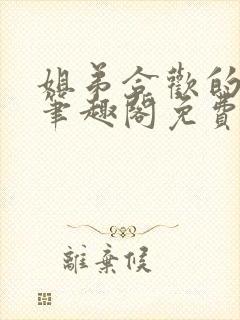 姐弟合歡的
筆趣閣免費
離棄候